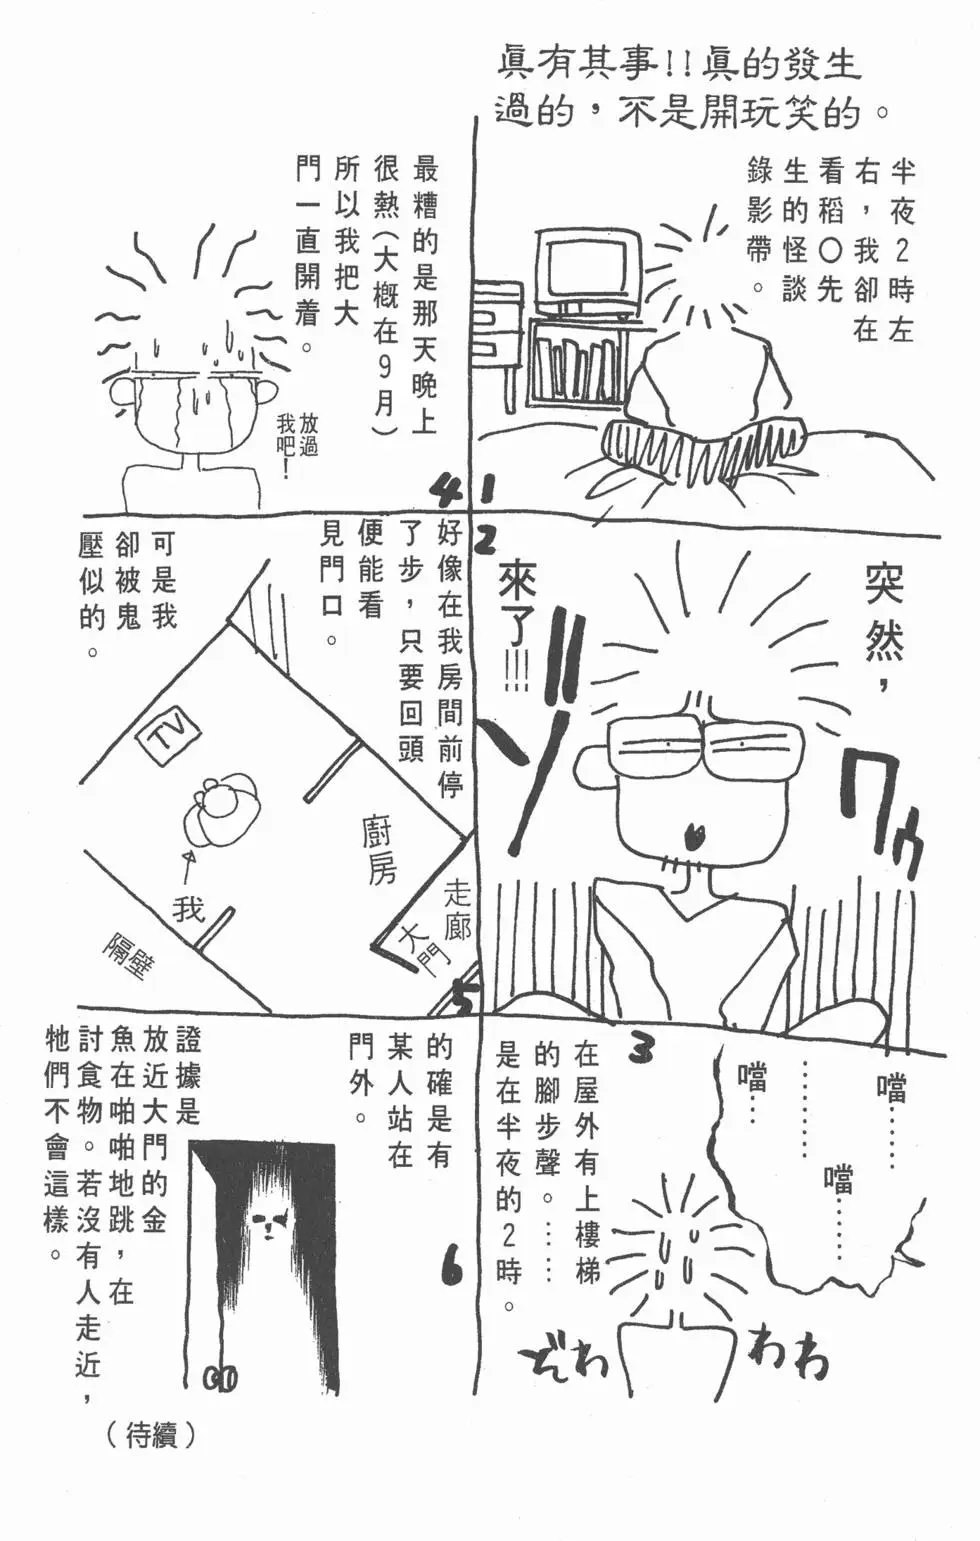 眞有其事!!眞的發生
過的，不是開玩笑的。
半夜2時左
右，我卻在
看稻〇先
生的怪談
錄影帶。
1
2
突然，
來了!!!
ゾ
ワゥ
3
噹……
噹……
………
噹…
在屋外有上樓梯
的腳步聲。……
是在半夜的2時。
ぞわ
わわ
4
最糟的是那天晚上
很熱(大槪在9月)
所以我把大
門一直開着。
放過
我吧!
5
好像在我房間前停
了步，只要回頭
便能看
見門口。
可是我
卻被鬼
壓似的。
TV
我
廚房
走廊
大門
隔壁
6
的確是有
某人站在
門外。
證據是
放近大門的金
魚在啪啪地跳，在
討食物。若沒有人走近，
牠們不會這樣。
(待續)